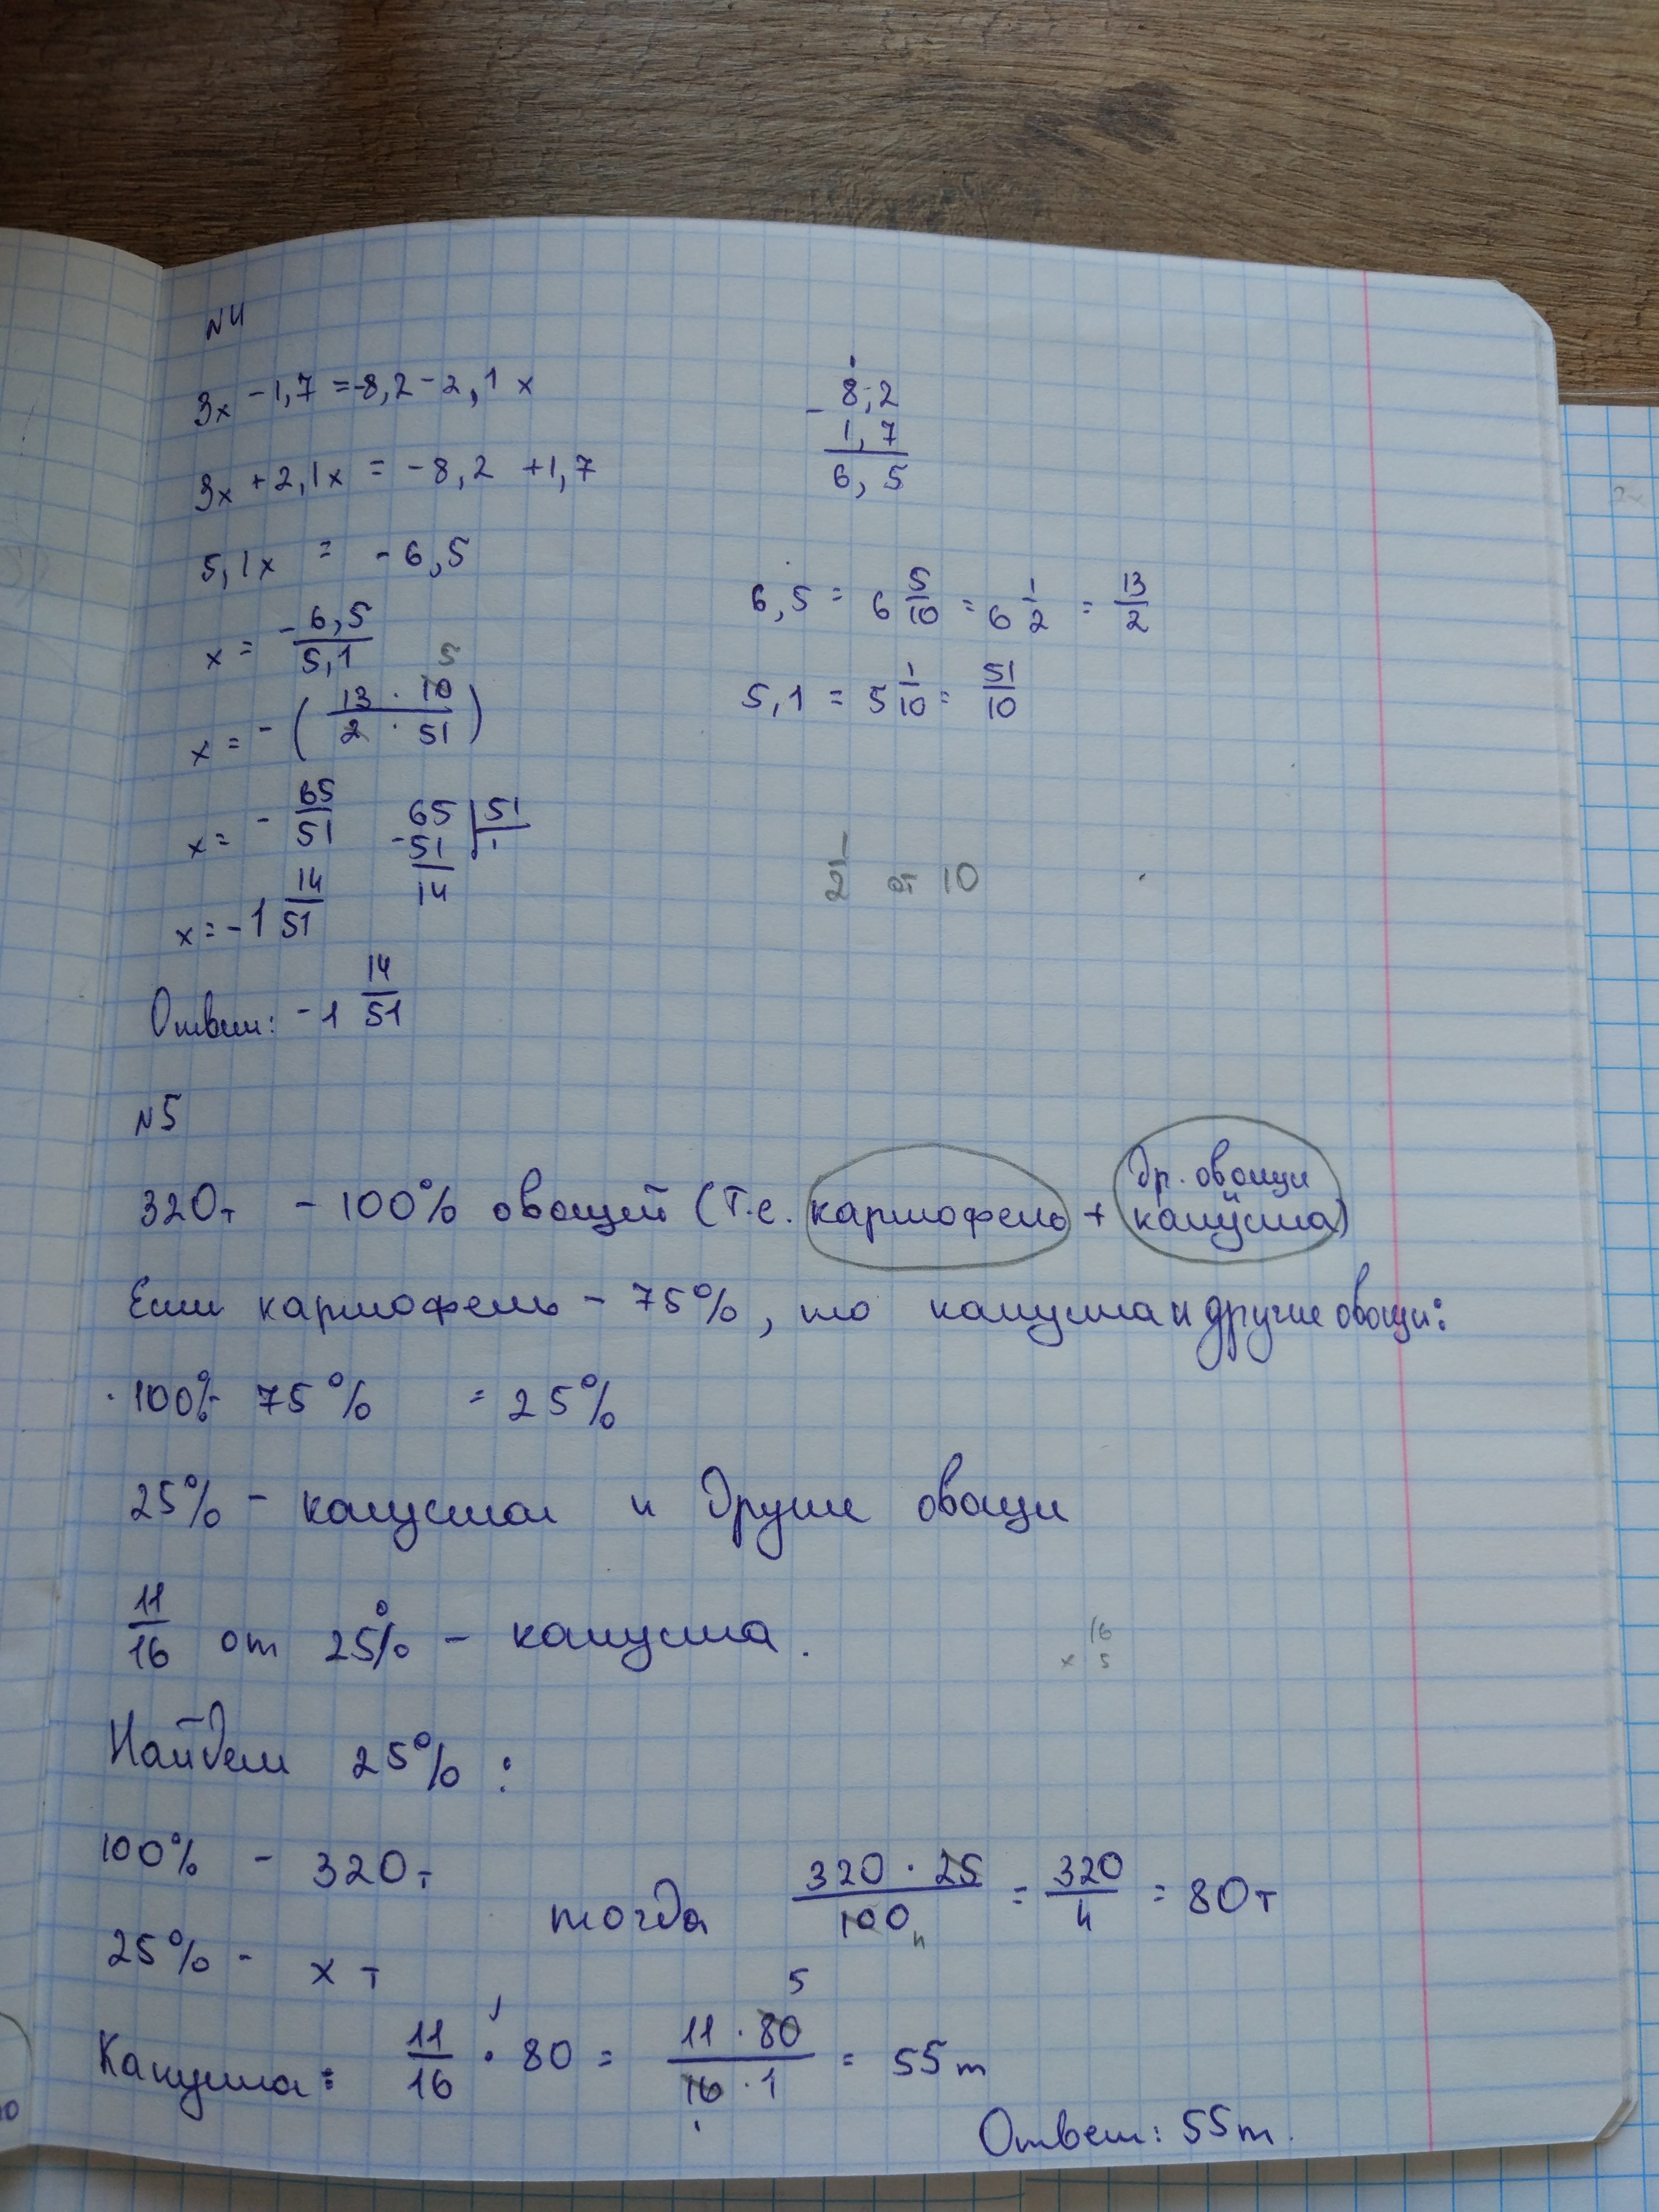 N4
3x - 1,7 = -8,2 - 2,1x
3x + 2,1x = -8,2 + 1,7
5,1x = -6,5
x = -6,5/5,1
x = -(13 · 10/2 · 51) 5
x = -65/51
x = -1 14/51
Ответ: -1 14/51
- 8,2
1,7
6,5
6,5 = 6 5/10 = 6 1/2 = 13/2
5,1 = 5 1/10 = 51/10
65 | 51
-51 | 1
14
от 10
N5
320т - 100% овощей (т.е. картофель + др. овощи и капуста)
Если картофель - 75%, то капуста и другие овощи:
100% - 75% = 25%
25% - капуста и другие овощи
11/16 от 25% - капуста.
16
× 5
Найдем 25%:
100% - 320т
25% - x т
тогда 320 · 25/100 = 320/4 = 80т
Капуста: 11/16 · 80 = 11 · 80/16 · 1 = 55т
5
Ответ: 55т.